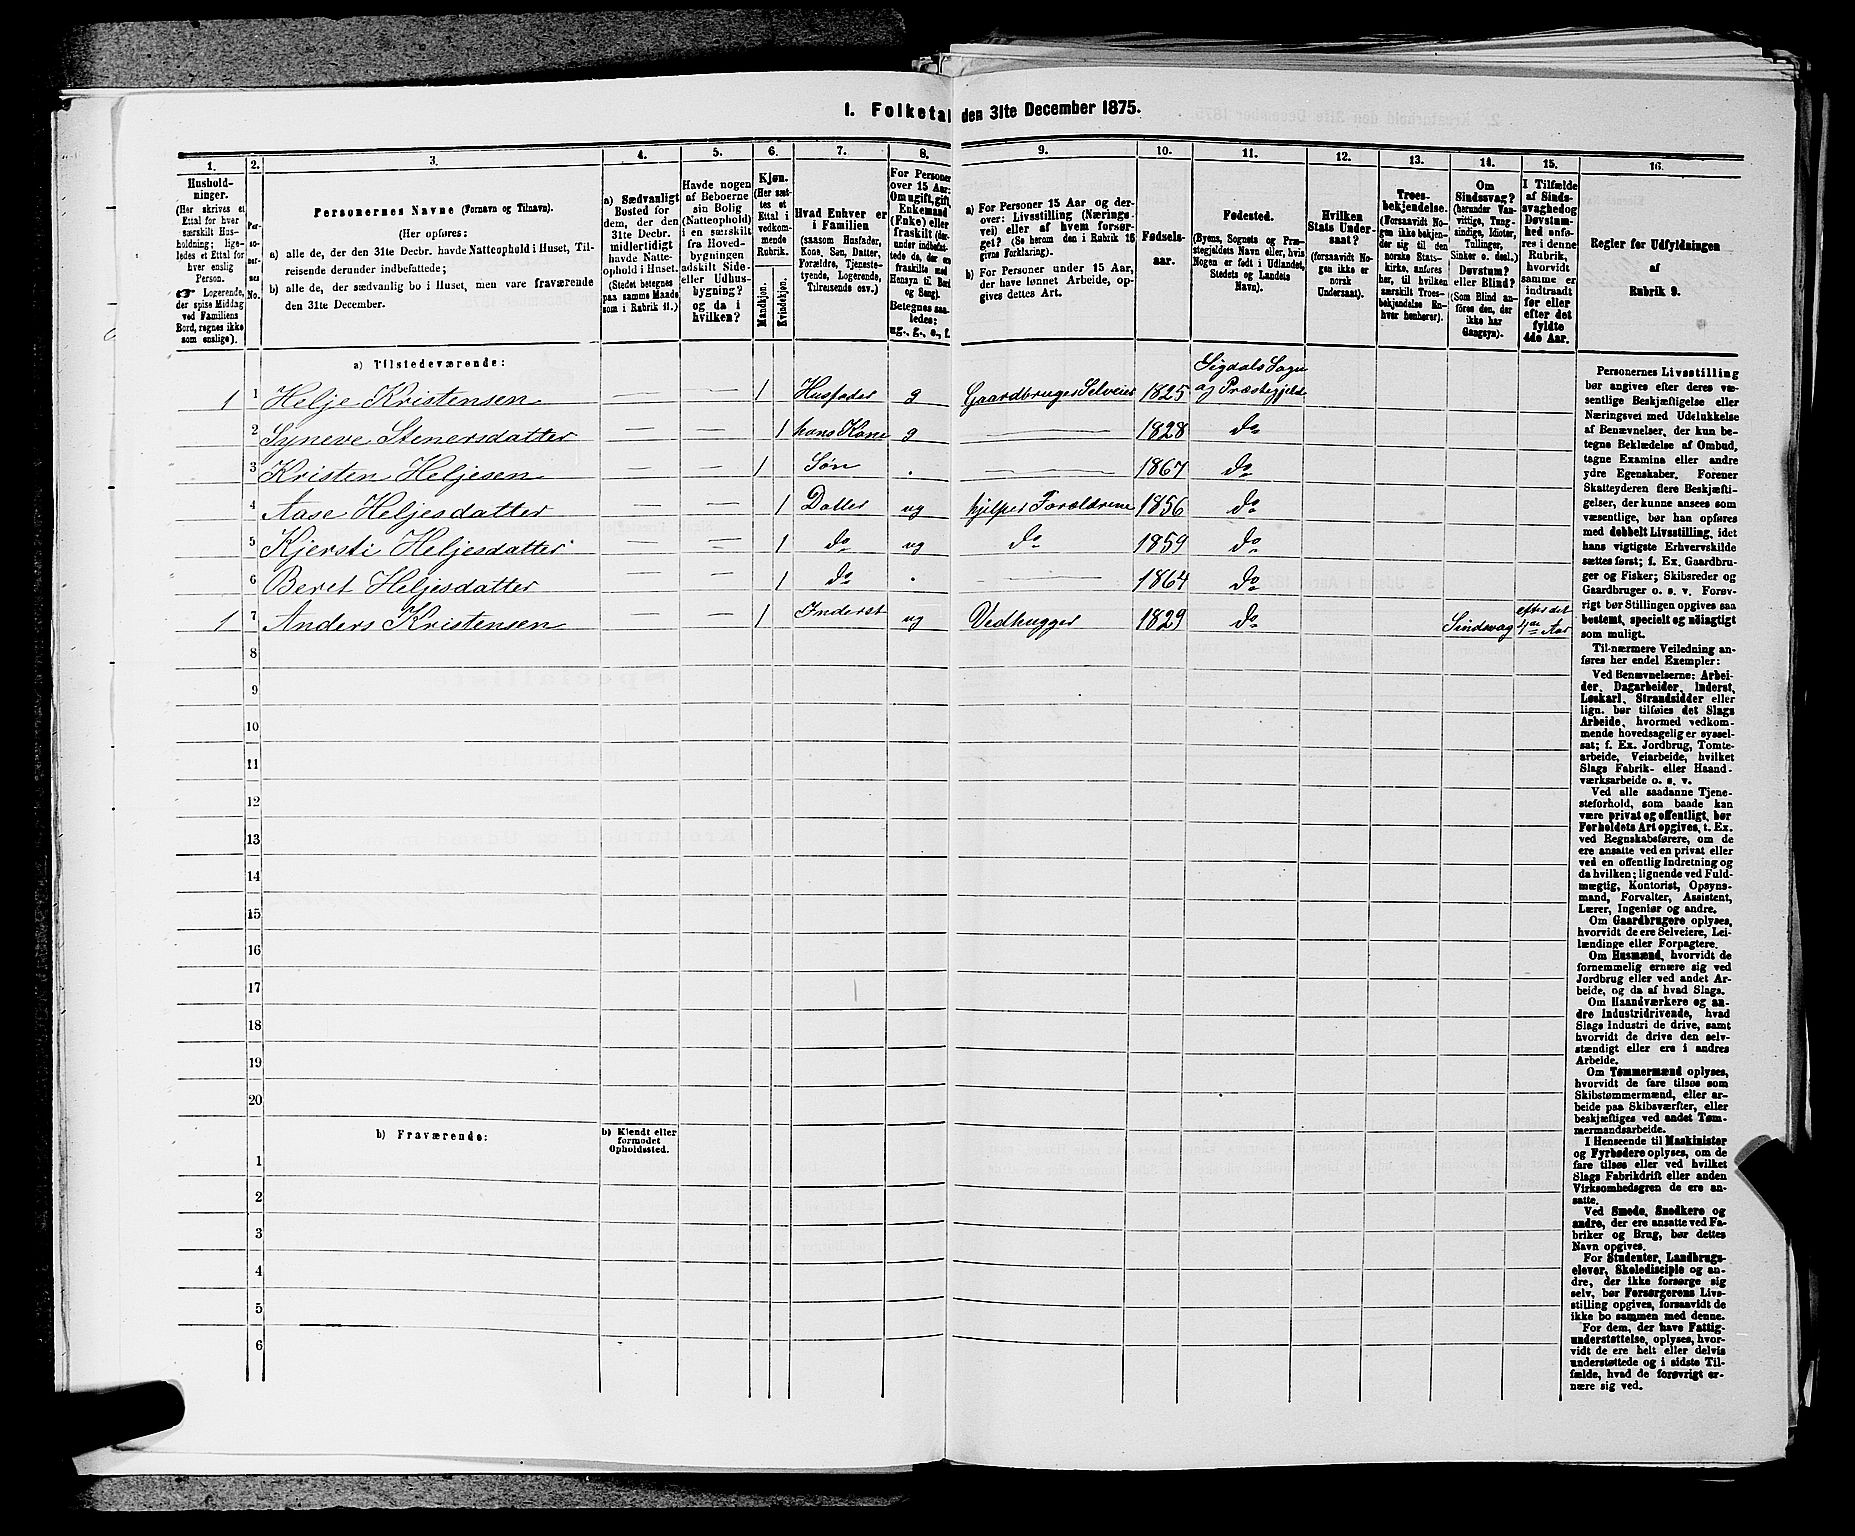 I. Folketal den 31te December 1875.
1.
2.
3.
4.
5.
6.
7.
8.
9.
10.
11.
12.
13.
14.
15.
16.
Hushold-
ninger.
(Her skrives et
Ettal for hver
særskilt Hus-
holdning; lige-
ledes et Ettal for
hver enslig
Person.
☞ Logerende,
der spise Middag
ved Familiens
Bord, regnes ikke
som enslige).
Per-
so-
ner-
nes
No.
Personernes Navne (Fornavn og Tilnavn).
(Her opføres:
a) alle de, der den 31te Decbr. havde Natteophold i Huset, Til-
reisende derunder indbefattede;
b) alle de, der sædvanlig bo i Huset, men vare fraværende
den 31te December.
a) Sædvanligt
Bosted for
dem, der den
31te Decbr.
midlertidigt
havde Natte-
ophold i Huset.
(Stedet betegnes
paa samme Maade
som i Rubrik 11.)
Havde nogen
af Beboerne
sin Bolig
(Natteophold)
i en særskilt
fra Hoved-
bygningen
adskilt Side-
eller Udhus-
bygning?
og da i
hvilken?
Kjøn.
(Her sæt-
tes et
Ettal i
vedkom-
mende
Rubrik.
Mandkjøn.
Kvindekjøn.
Hvad Enhver er
i Familien
(saasom Husfader,
Kone, Søn, Datter,
Forældre, Tjeneste-
tyende, Logerende,
Tilreisende osv.)
For Personer
over 15 Aar:
Om ugift, gift,
Enkemand
(Enke) eller
fraskilt (der-
under indbefat-
tede de, der ere
fraskilte med
Hensyn til Bord
og Seng).
Betegnes saa-
ledes:
ug., g., e., f.
a) For Personer 15 Aar og der-
over: Livsstilling (Nærings-
vei) eller af hvem forsør-
get? (Se herom den i Rubrik 16
givne Forklaring).
b) For Personer under 15 Aar,
der have lønnet Arbeide, op-
gives dettes Art.
Fødsels-
aar.
Fødested.
(Byens, Sognets og Præ-
stegjeldets Navn eller, hvis
Nogen er født i Udlandet,
Stedets og Landets
Navn).
Hvilken
Stats Under-
saat?
(forsaavidt No-
gen ikke er
norsk
Undersaat).
Troes-
bekjendelse.
(Forsaavidt No-
gen ikke bekjen-
der sig til den
norske Stats-
kirke, anføres
her, til hvilken
særskilt Troes-
bekjendelse En-
hver henhører).
Om
Sindssvag?
(herunder Van-
vittige, Tung-
sindige, Idioter,
Tullinger,
Sinker o. desl.)
Døvstum?
eller Blind?
(Som Blind an-
føres den, der
ikke har
Gangsyn).
I Tilfælde
af Sinds-
svaghed og
Døvstum-
hed anfø-
res i denne
Rubrik,
hvorvidt
samme er
indtraadt
før eller
efter det
fyldte
4de Aar.
Regler for Udfyldningen
af
Rubrik 9.
a) Tilstedeværende:
1 1 Helje Kristensen — — 1 Husfader g Gaardbruger Selveier 1825 Sigdals Sogn
og Præstegjeld
2 Syneve Stenersdatter — — 1 hans Kone g — 1828 do
3 Kristen Heljesen — — 1 Søn . — 1867 do
4 Aase Heljesdatter — — 1 Datter ug hjelper Forældrene 1856 do
5 Kjersti Heljesdatter — — 1 do ug do 1859 do
6 Beret Heljesdatter — — 1 do . — 1864 do
1 7 Anders Kristensen — — 1 Inderst ug Vedhugger 1829 do Sindsvag efter det
4de Aar
8
9
10
11
12
13
14
15
16
17
18
19
20
b) Fraværende:
b) Kjendt eller
formodet
Opholdssted.
1
2
3
4
5
6
Personernes Livsstilling
bør angives efter deres væ-
sentlige Beskjæftigelse eller
Næringsvei med Udelukkelse
af Benævnelser, der kun be-
tegne Beklædelse af Ombud,
tagne Examina eller andre
ydre Egenskaber. Forener
Skatteyderen flere Beskjæfti-
gelser, der kunne ansees som
væsentlige, bør han opføres
med dobbelt Livsstilling, idet
hans vigtigste Erhvervskilde
sættes først; f. Ex. Gaardbru-
ger og Fisker; Skibsreder og
Gaardbruger o. s. v. Forøv-
rigt bør Stillingen opgives saa
bestemt, specielt og nøiagtigt
som muligt.
Til nærmere Veiledning an-
føres her endel Exempler:
Ved Benævnelserne: Arbei-
der, Dagarbeider, Inderst,
Løskarl, Strandsidder eller
lign. bør tilføies det Slags
Arbeide, hvormed vedkom-
mende hovedsagelig er syssel-
sat; f. Ex. Jordbrug, Tomte-
arbeide, Veiarbeide, hvilket
Slags Fabrik- eller Haand-
værksarbeide o. s. v.
Ved alle saadanne Tjene-
steforhold, som baade kan
være privat og offentligt, bør
Forholdets Art opgives, t. Ex.
ved Regnskabsførere, om de
ere ansatte ved en privat eller
ved en offentlig Indretning og
da hvilken; lignende ved Fuld-
mægtig, Kontorist, Opsyns-
mand, Forvalter, Assistent,
Lærer, Ingeniør og andre.
Om Gaardbrugere oplyses,
hvorvidt de ere Selveiere, Lei-
lændinge eller Forpagtere.
Om Husmænd, hvorvidt de
fornemmelig ernære sig ved
Jordbrug eller ved andet Ar-
beide, og da af hvad Slags.
Om Haandværkere og an-
dre Industridrivende, hvad
Slags Industri de drive, samt
hvorvidt de drive den selv-
stændigt eller ere i andres
Arbeide.
Om Tømmermænd oplyses,
hvorvidt de fare tilsøs som
Skibstømmermænd, eller ar-
beide paa Skibsværfter, eller
beskjæftiges ved andet Tøm-
mermandsarbeide.
I Henseende til Maskinister
og Fyrbødere oplyses, om de
fare tilsøs eller ved hvilket
Slags Fabrikdrift eller anden
Virksomhedsgren de ere an-
satte.
Ved Smede, Snedkere og
andre, der ere ansatte ved Fa-
briker og Brug, bør dettes
Navn opgives.
For Studenter, Landbrugs-
elever, Skoledisciple og an-
dre, der ikke forsørge sig
selv, bør Forsørgerens Livs-
stilling opgives, forsaavidt de
ikke bo sammen med denne.
For dem, der have Fattig-
understøttelse, oplyses, hvor-
vidt de ere helt eller delvis
understøttede og i sidste Til-
fælde, hvad de forøvrigt er-
nære sig ved.